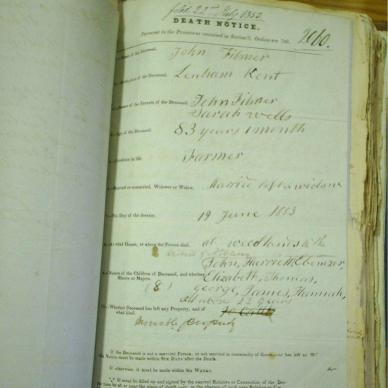 filed 22nd July 1853
DEATH NOTICE.
Pursuant to the Provisions contained in Section 9, Ordinance 104. 2060.
Name of the Deceased, John Filmer
of the Deceased, Lenham Kent
Names of the Parents of the Deceased, John Filmer
Sarah Wells
Age of the Deceased, 83 years 1 month
in life Farmer
Married or unmarried, Widower or Widow, Married left a widow
The Day of the decease, 19 June 1853
At what House, or where the Person died, at Woodlands in the
of Albany
Names of the Children of Deceased, and whether John, Harriett, Ebenezer,
Minors or Majors. Elizabeth, Thomas,
(8) George, James, Hannah,
all above 22 years
Whether Deceased has left any Property, and of
what kind.
Moveable property
If the Deceased is not a married Person, or not married in community of Goods or has left no Will
the Notice must be made within SIX DAYS after the DEATH.
If otherwise, it must be made within SIX WEEKS.
It must be filled up and signed by the nearest Relative or Connection of the